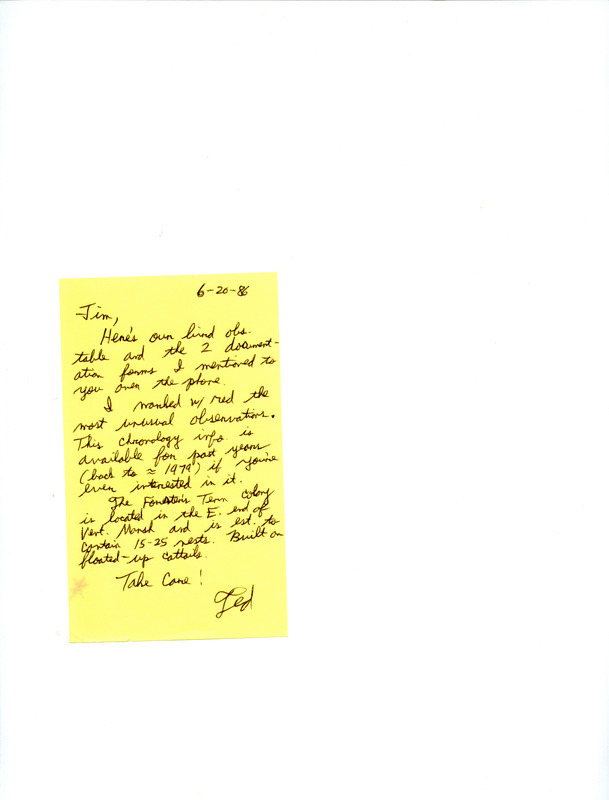 6-20-86
Jim,
Here's our bird obs.
table and the 2 document-
ation forms I mentioned to
you over the phone.
I marked w/ red the
most unusual observations.
This chronology info. is
available for past years
(back to ≈ 1979) if you're
ever interested in it.
The Forster's Tern colony
is located in the E. end of
Vert. Marsh and is est. to
contain 15-25 nests. Built on
floated-up cattails.
Take Care!
Ted